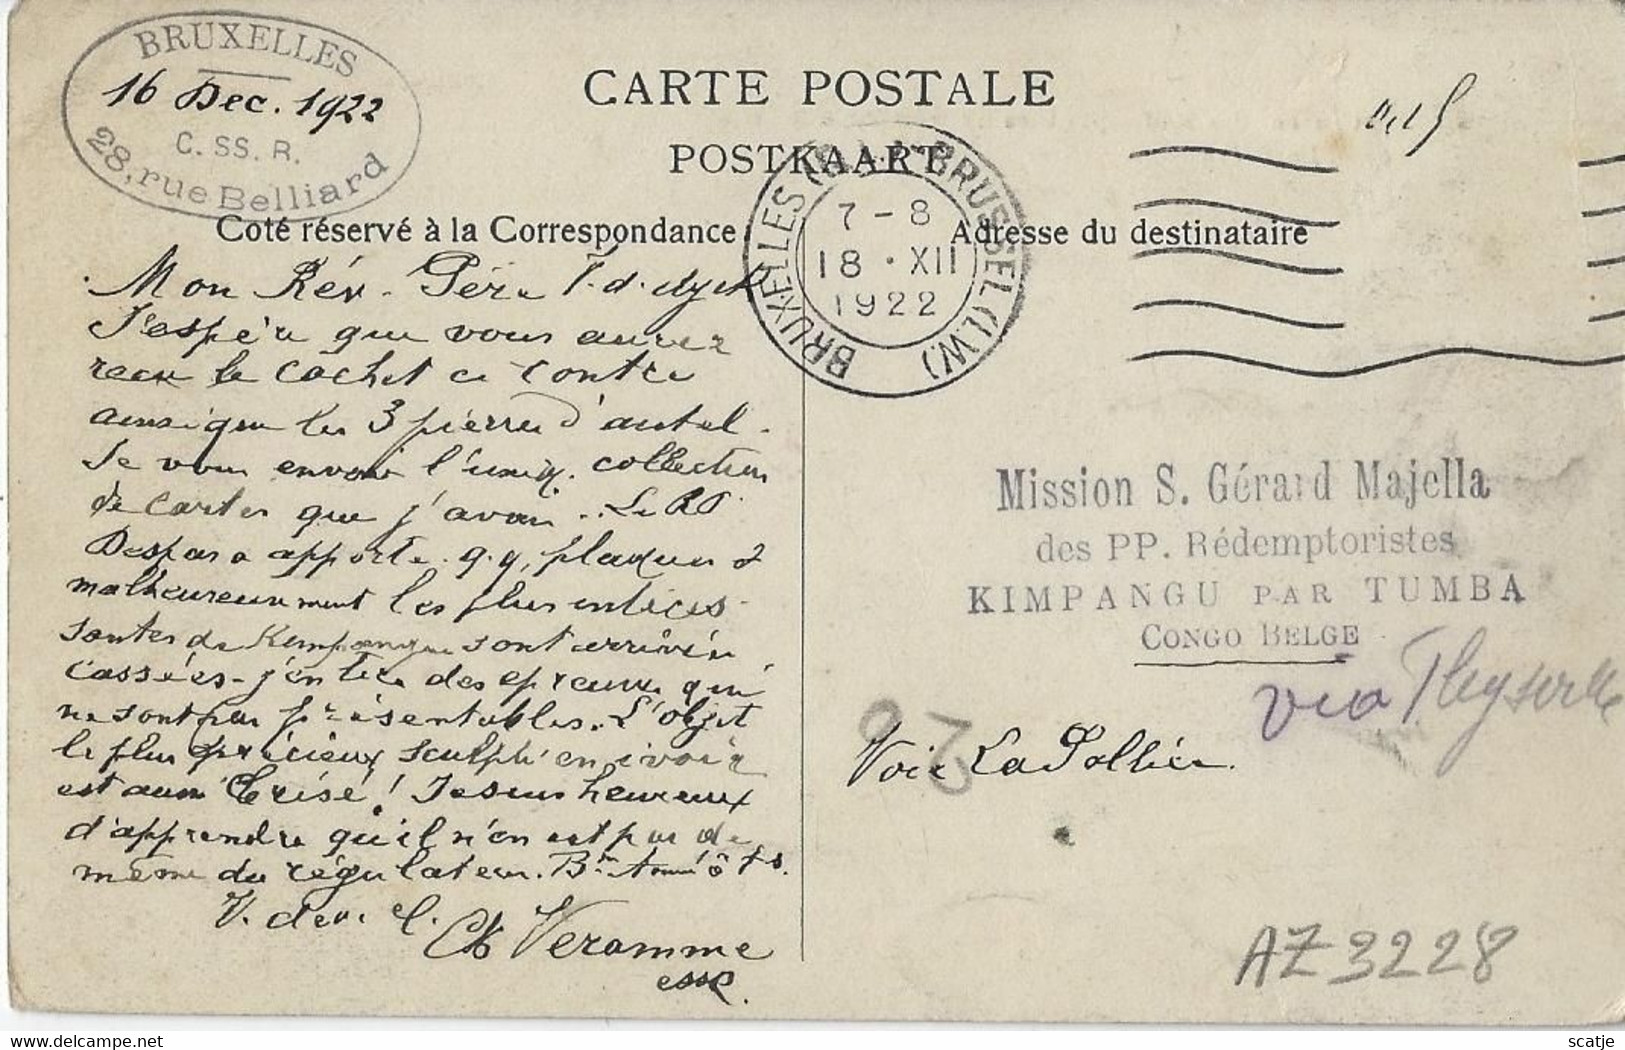 BRUXELLES
16 Dec. 1922
C. SS. R.
28, rue Belliard
CARTE POSTALE
POSTKAART
BRUXELLES BRUSSEL (L.W.)
7-8
18 · XII
1922
Coté réservé à la Correspondance
Adresse du destinataire
Mon Rév. Père V. d.
J'espère que vous aurez
recu le cachet ci contre
ainsi que les 3 pierres d'autel.
Je vous envoie l'uniq. collection
de cartes que j'avais. Le RP
Despas a apporte q.q. plaques &
malheureusement les plus intéres-
santes de Kimpangu sont arrivées
cassées - j'en tire des epreuves qui
ne sont pas présentables. L'objet
le plus précieux sculpté en ivoire
est aussi brisé! Je suis heureux
d'apprendre qu'il n'en est pas de
même du régulateur. Bne Année à Ts.
V. dev. C.
Ch Veramme
cssr.
Mission S. Gérard Majella
des PP. Rédemptoristes
KIMPANGU PAR TUMBA
CONGO BELGE
via Thysville
Voie La Pallice.
AZ 3228
delcampe.net
scatje